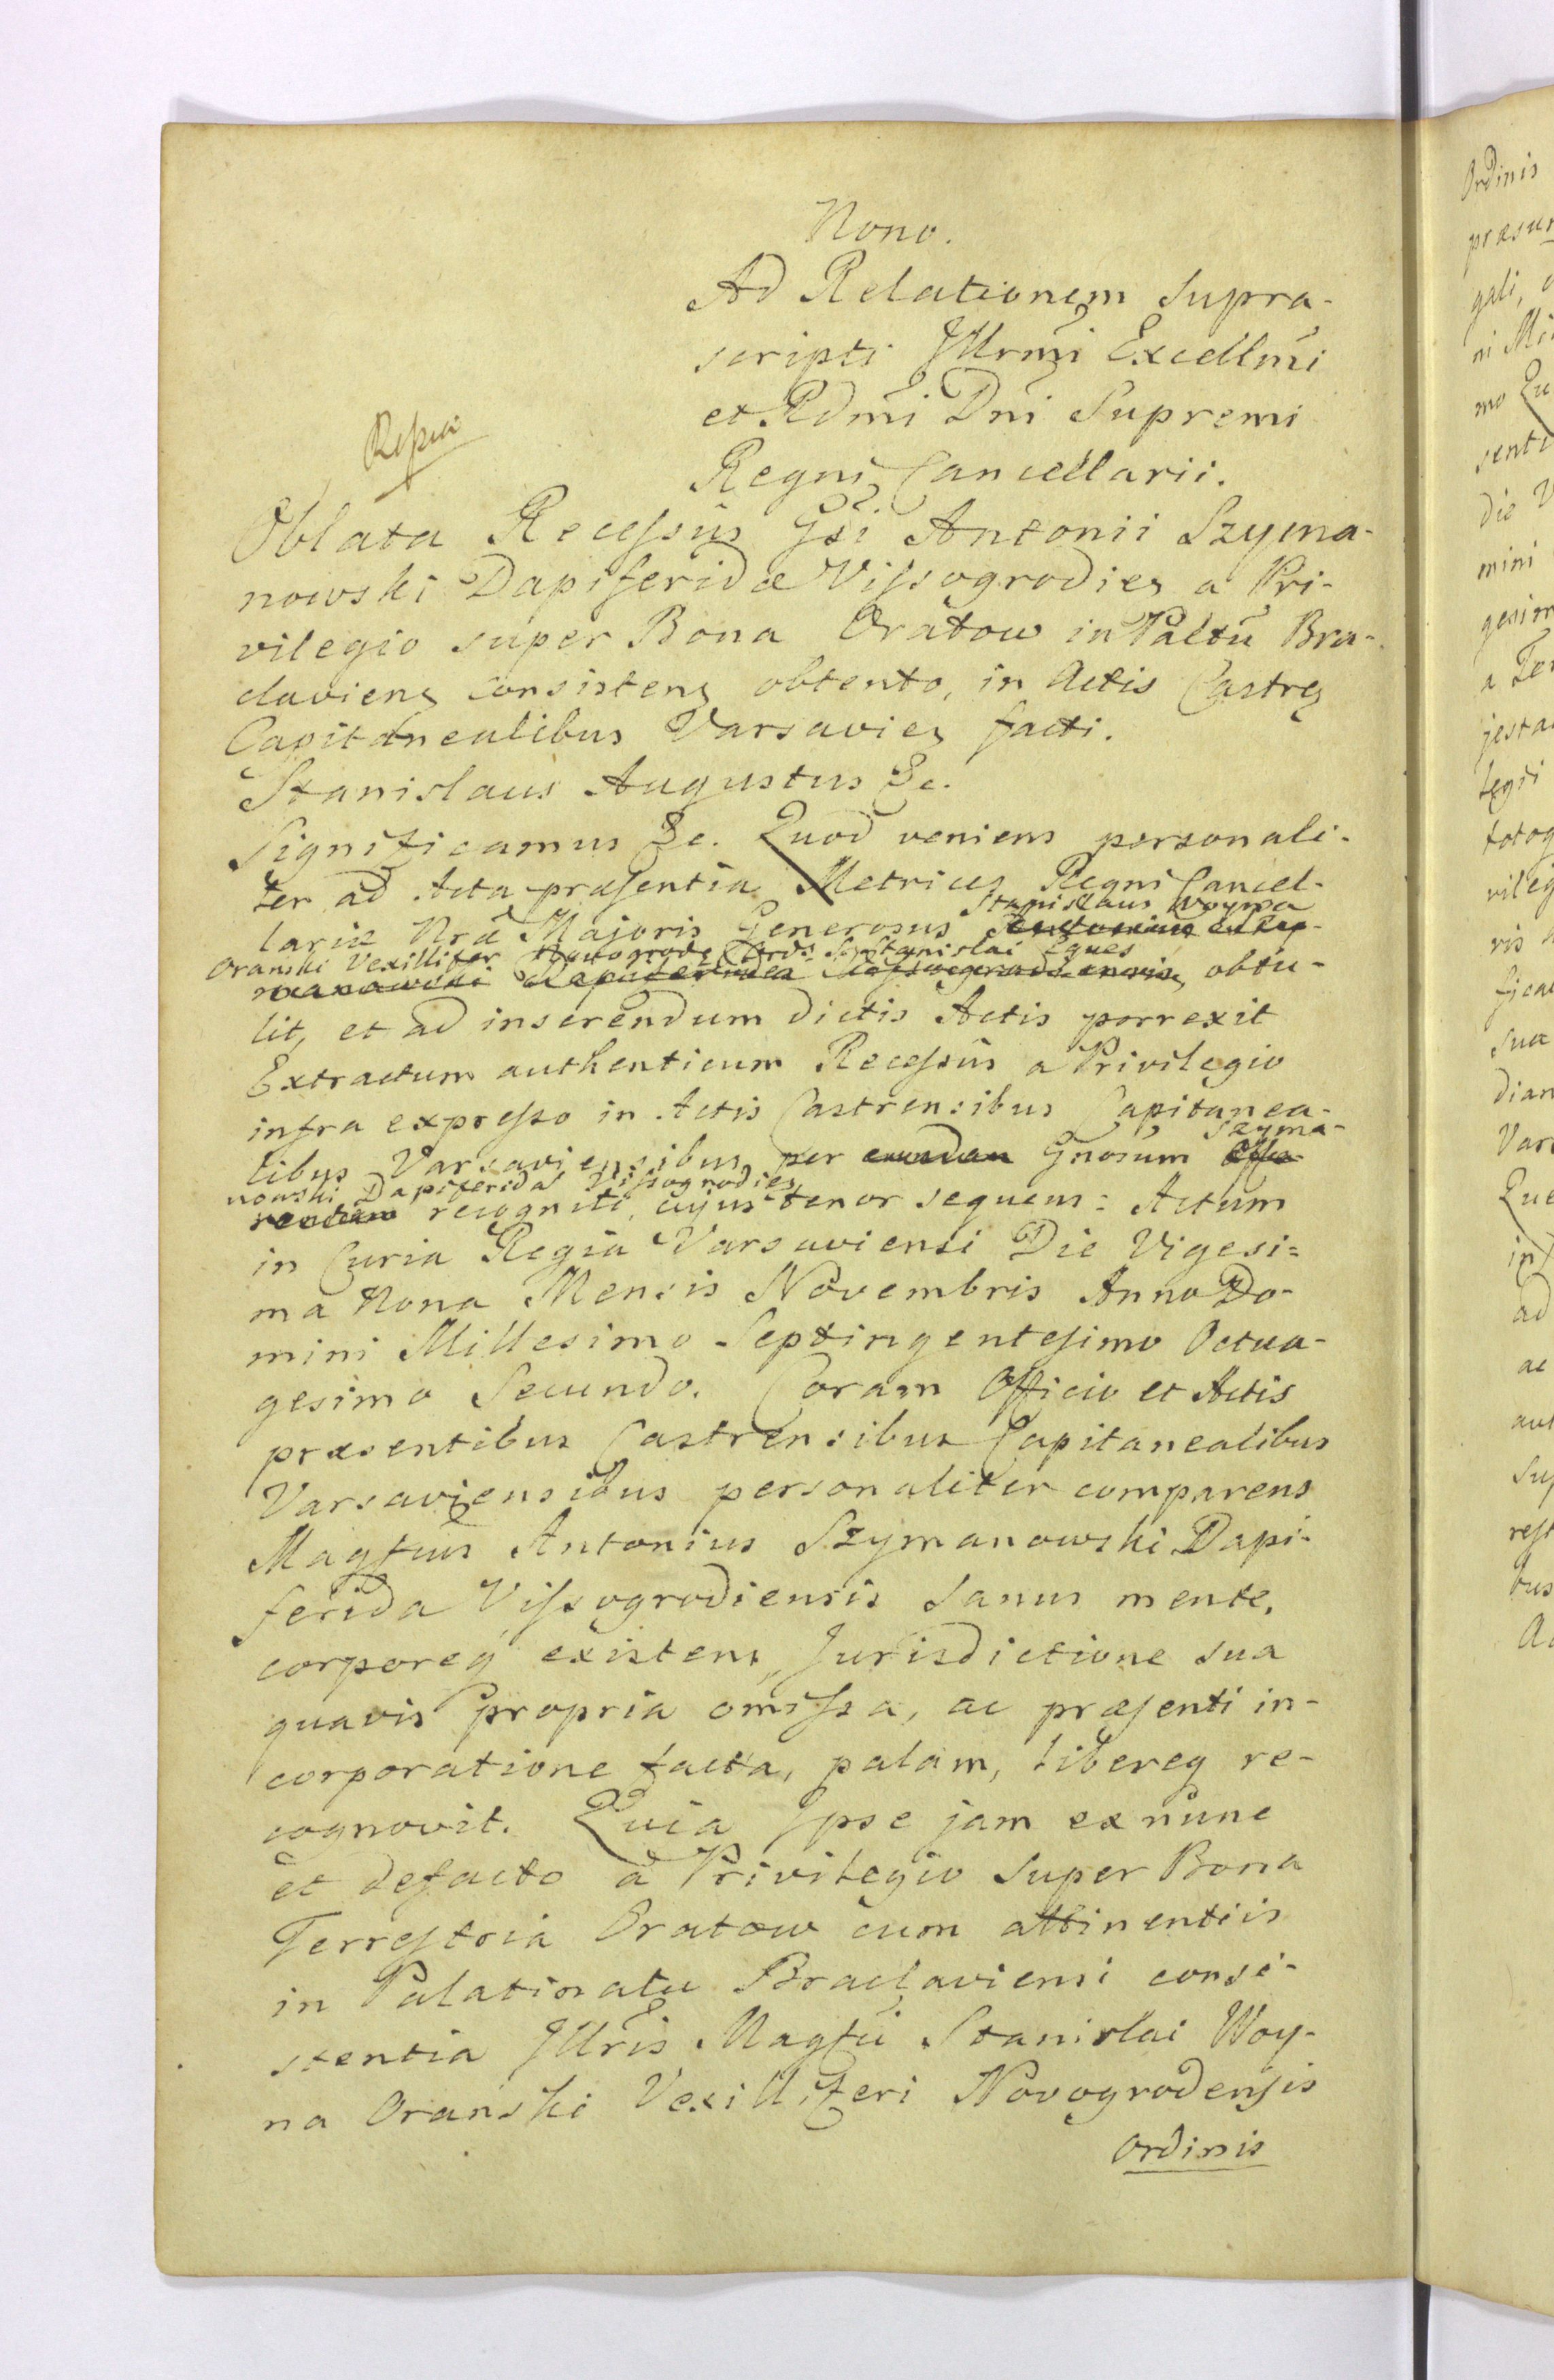 Nono.
Ad Relationem supra-
scripti Jllrmi Excellmi
et Rdmi Dni Supremi
Regni Cancellarii.
Oblata Recessus Gsi Antonii Szyma-
nowski Dapiferidæ Vissogrodien a Pri-
vilegio super Bona Oratow in Paltu Bra-
claviens consistens obtento, in Actis Castren
Capitanealibus Varsavien facti.
Stanislaus Augustus &c.
Significamus &c. Quod veniens personali-
ter ad Acta præsentia Metrices Regni Cancel-
Stanislaus Woyna
lariæ Nræ Majoris Generosus Antonius Szy-
Oranski Vexillifer Novogrod Ords S. Stanislai Eques
manowski Dapiferida Vissogrodensis obtu-
lit, et ad inserendum dictis Actis porrexit
Extractum authenticum Recessus a Privilegio
infra expresso in Actis Castrensibus Capitanea-
Szyma-
libus Varsaviensibus per eundem Gnosum offe-
nowski Dapiferida Vissogrodien
rentem recogniti, cujus tenor sequens: Actum
in Curia Regia Varsaviensi Die Vigesi-
ma Nona Mensis Novembris Anno Do-
mini Millesimo Septingentesimo Octua-
gesimo Secundo. Coram Officio et Actis
præsentibus Castrensibus Capitanealibus
Varsaviensibus personaliter comparens
Magfcus Antonius Szymanowski Dapi-
ferida Vissogrodiensis Sanus mente,
corporeq existens, Jurisdictione sua
quavis propria omissa, ac præsenti in-
corporatione facta, palam, libereq re-
cognovit. Quia Jpse jam ex nunc
et defacto a Privilegio super Bona
Terrestria Oratow cum attinentiis
in Palatinatu Braclaviensi consi-
stentia Jllris Magfci Stanislai Woy-
na Oranski Vexilliferi Novogrodensis
Ordinis
Ordinis
gali,
mo
senti
die
mini
a
totog
vileg
ris
ficat
sua
dian
Vars
Que
in
ad
ac
aut
sup
rest
bus